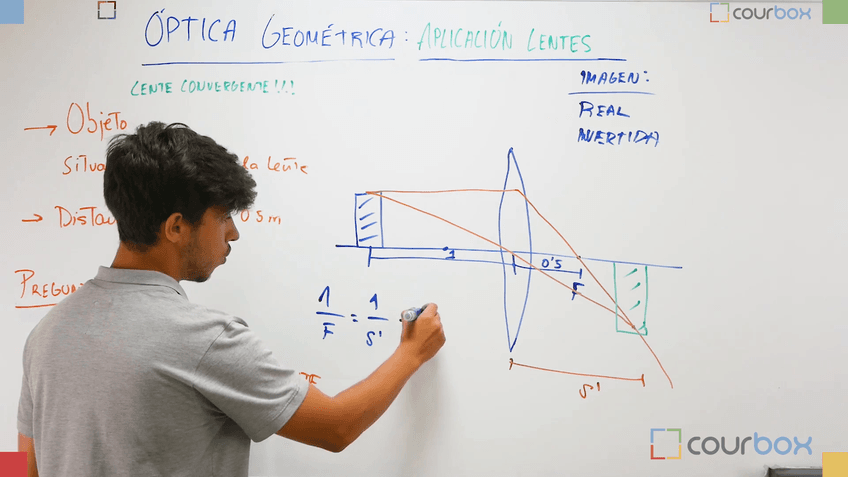 courbox
ÓPTICA GEOMÉTRICA: APLICACIÓN LENTES
LENTE CONVERGENTE!!!
IMAGEN:
REAL
INVERTIDA
→ Objeto
la lente
→ 0'5m
1
0'5
F
1/F = 1/S'
S'
courbox